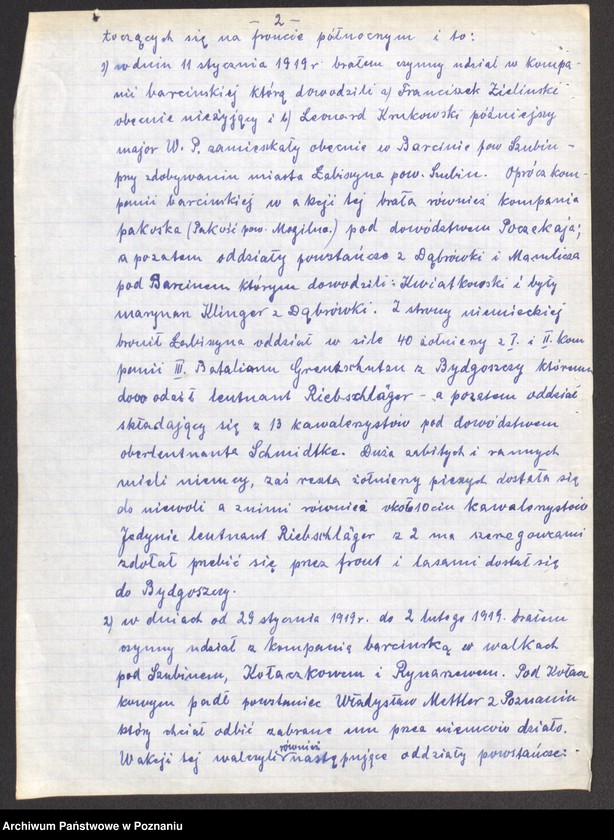 - 2 -
toczących się na froncie północnym i to:
1) w dniu 11 stycznia 1919 r brałem czynny udział w kompa-
nii barcińskiej którą dowodzili a) Franciszek Zieliński
obecnie nieżyjący i b) Leonard Krukowski późniejszy
major W. P. zamieszkały obecnie w Barcinie pow Szubin -
przy zdobywaniu miasta Łabiszyna pow. Szubin. Oprócz kom-
panii barcińskiej w akcji tej brała również kompania
pakoska (Pakość pow. Mogilno.) pod dowództwem Poczekaja;
a pozatem oddziały powstańcze z Dąbrówki i Mamlicza
pod Barcinem którym dowodzili: Kwiatkowski i były
marynarz Klinger z Dąbrówki. Z strony niemieckiej
bronił Łabiszyna oddział w sile 40 żołnierzy z I. i II. kom
panii III. Batalianu Grentzschutzu z Bydgoszczy któremu
dowodził leutnant Riebschläger - a pozatem oddział
składający się z 13 kawalerzystów pod dowództwem
oberleutnanta Schmidtke. Dużo zabitych i rannych
mieli niemcy, zaś reszta żołnierzy pieszych dostała się
do niewoli a z nimi również około 10ciu kawalerzystów
Jedynie leutnant Riebschläger z 2 ma szeregowcami
zdołał przebić się przez front i lasami dostał się
do Bydgoszczy.
2) w dniach od 29 stycznia 1919r. do 2 lutego 1919. brałem
czynny udział z kompanią barcińską w walkach
pod Szubinem, Kołaczkowem i Rynarzewem. Pod Kołacz
kowym padł powstaniec Władysław Mettler z Poznania
który chciał odbić zabrane mu przez niemców działo.
W akcji tej walczyli również następujące oddziały powstańcze: -
Archiwum Państwowe w Poznaniu